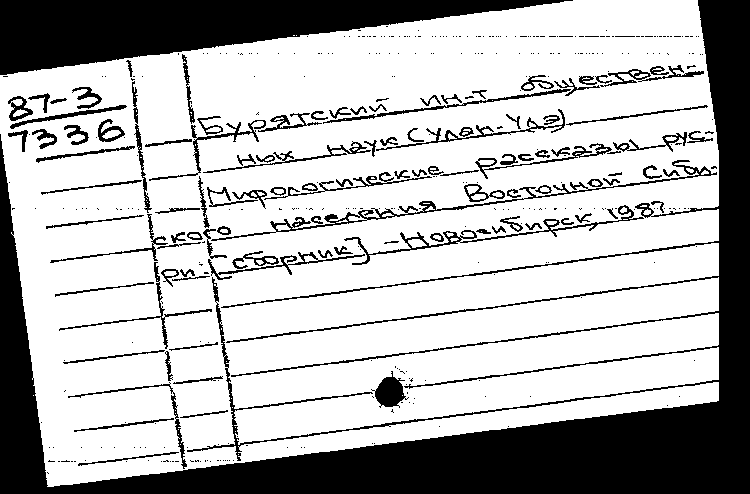 87-3
7336
Бурятский ин-т обществен-
ных наук (Улан-Удэ)
Мифологические рассказы рус-
ского населения Восточной Сиби-
ри. [сборник] - Новосибирск, 1987.